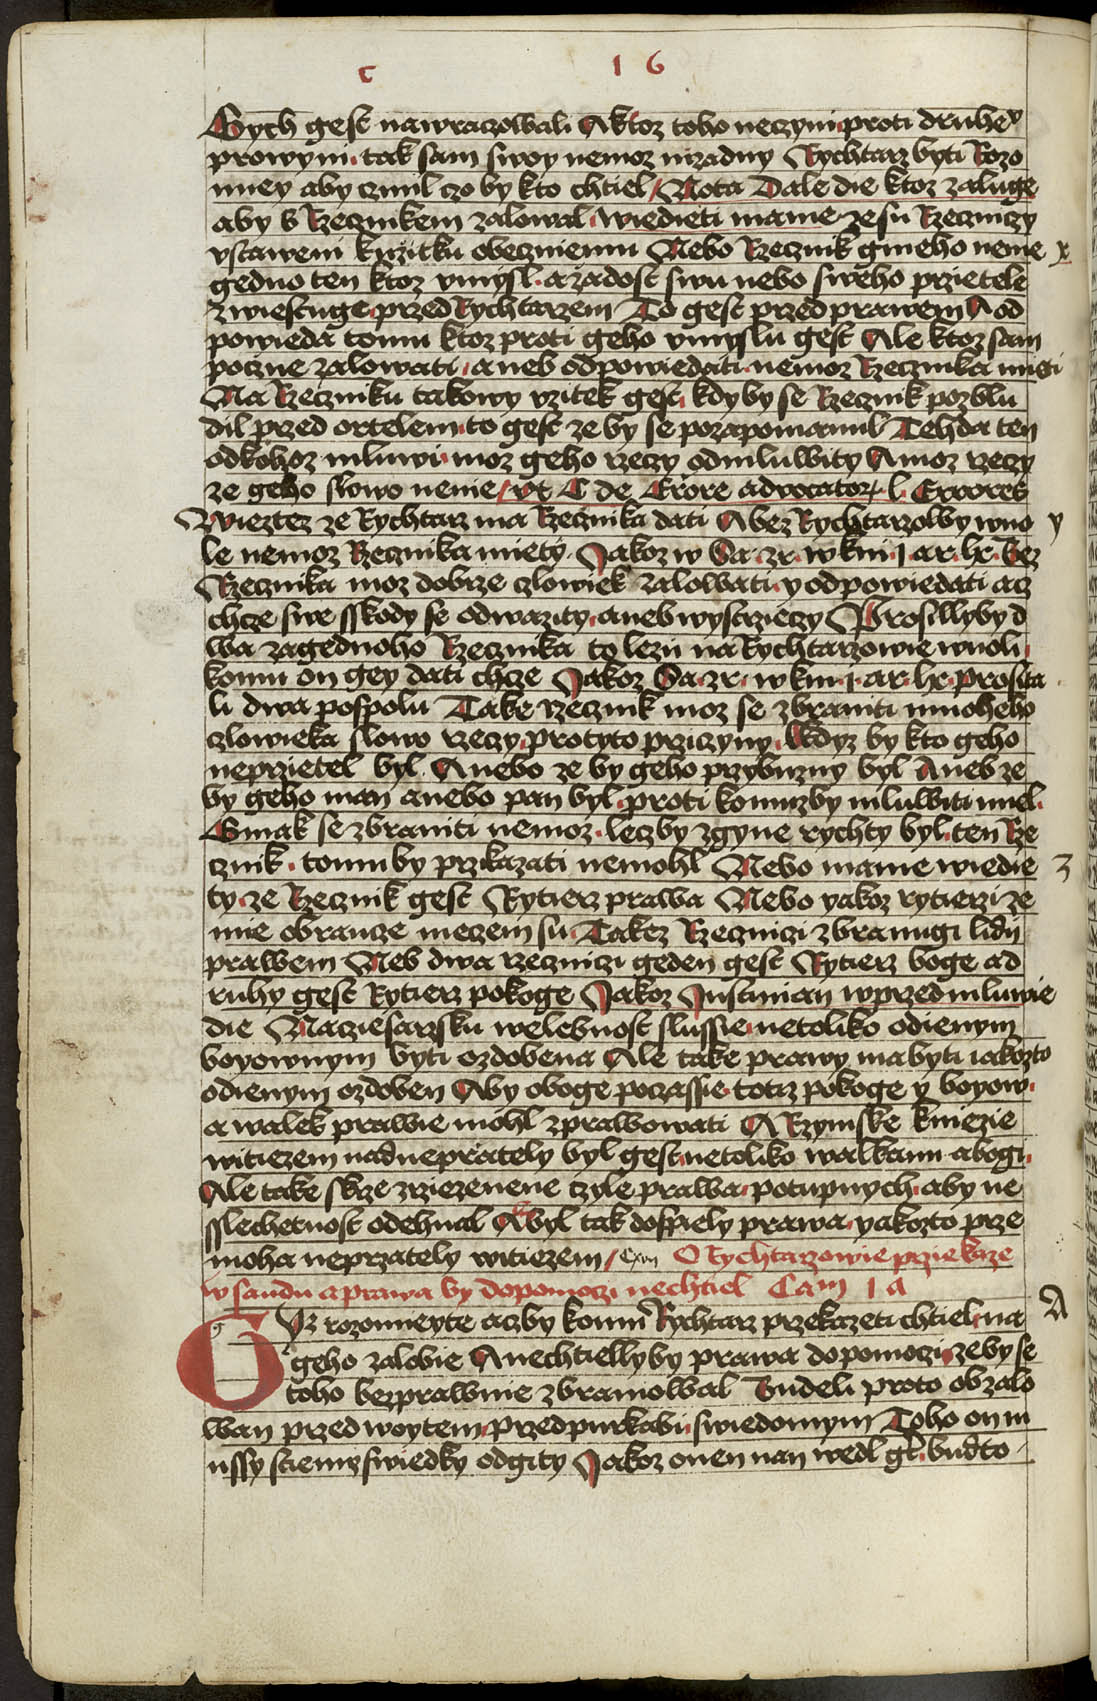 c 1 6
Bych gest nawraczowali A ktoz toho neczyni proti druhey
prowyni tak sam swoy nemoz nizadny Rychtarz byti Rozo
miney aby czinil czo by kto chtiel Nota Dale die ktoz zaluge
aby s Rzecznikem zalowal wiedieti mame ze su Rzeczniczy
vstaweni k vzitku obecznemu Nebo Rzecznik gineho nenie x
gedno ten ktoz vmysl a zadost swu nebo sweho przietele
zwiestuge przed Rychtarzem To gest przed prawem A od
powieda tomu ktoz proti geho vmyslu gest Ale ktoz sam
poczne zalowati aneb odpowiedati nemoz Rzecznika mieti
Na Rzeczniku takowy vzitek gest kdyby se Rzecznik pozblu
dil przed ortelem to gest ze by se pozapomanul Tehda ten
od kohoz mluwi moz geho rzeczy odmluwity A moz rzeczy
ze geho slowo nenie vt C de Erore advocator l Errores
Wieztez ze Rychtarz ma Rzecznika dati A bez Rychtarzowy wuo y
le nemoz Rzecznika miety Jakoz w Sa zr w kni j ar lx Bez
Rzecznika moz dobrze czlowiek zalowati y odpowiedati acz
chcze swe sskody se odwazity aneb wystrzieczy Prosillyby d
wa za gednoho Rzecznika to lezii na Rychtarzowie wuoli
komu on gey dati chcze Jakoz Sa zr w kni j ar lx prosita
li dwa pospolu Take rzecznik moz se zbraniti mnoheho
czlowieka slowo rzeczy pro tyto przicziny Kdyz by kto geho
neprzietel byl Anebo ze by geho przybuzny byl Aneb ze
by geho man anebo pan byl proti komuzby mluwiti miel
Ginak se zbraniti nemoz leczby z gyne rychty byl ten Rze
cznik tomu by przikazati nemohl Nebo mame wiedie z
ty ze Rzecznik gest Rytierz prawa Nebo yakoz rytierzi ze
mie obrancze meczem su Takez Rzeczniczi zbranugi lidii
prawem Neb dwa rzeczniczi geden gest Rytierz boge a d
ruhy gest Rytierz pokoge Jakoz Justinian w przedmluwie
die Na cziesarzsku welebnost slussie netoliko odienym
boyownym byti ozdobena Ale take prawy ma byti iakozto
odienym ozdoben Aby oboge poczassie totiz pokoge y boyow
a walek prawie mohl zprawowati A Rzymske kniezie
witiezem nad neprately byl gest netoliko walkami a bogi
Ale take skrze zrziezenene czyle prawa potupnych aby ne
sslechetnost odehnal A byl tak dospiely prawa yakozto prze
moha neprzately witiezem Cxvij O Rychtarzowie przekaze
w saudu a prawa by dopomoczi nechtiel Cam 1 a
Uz rozomieyte aczby komu Rychtarz przekazeti chtiel na A
geho zalobie A nechtiellyby prawa dopomoczi ze by se
toho bezprawnie zbraniowal Budeli proto obzalo
wan przed woytem przed purkabi swiedomym Toho on m
ussy sciemi swiedky odgity Jakoz onen nan wedl gt budto